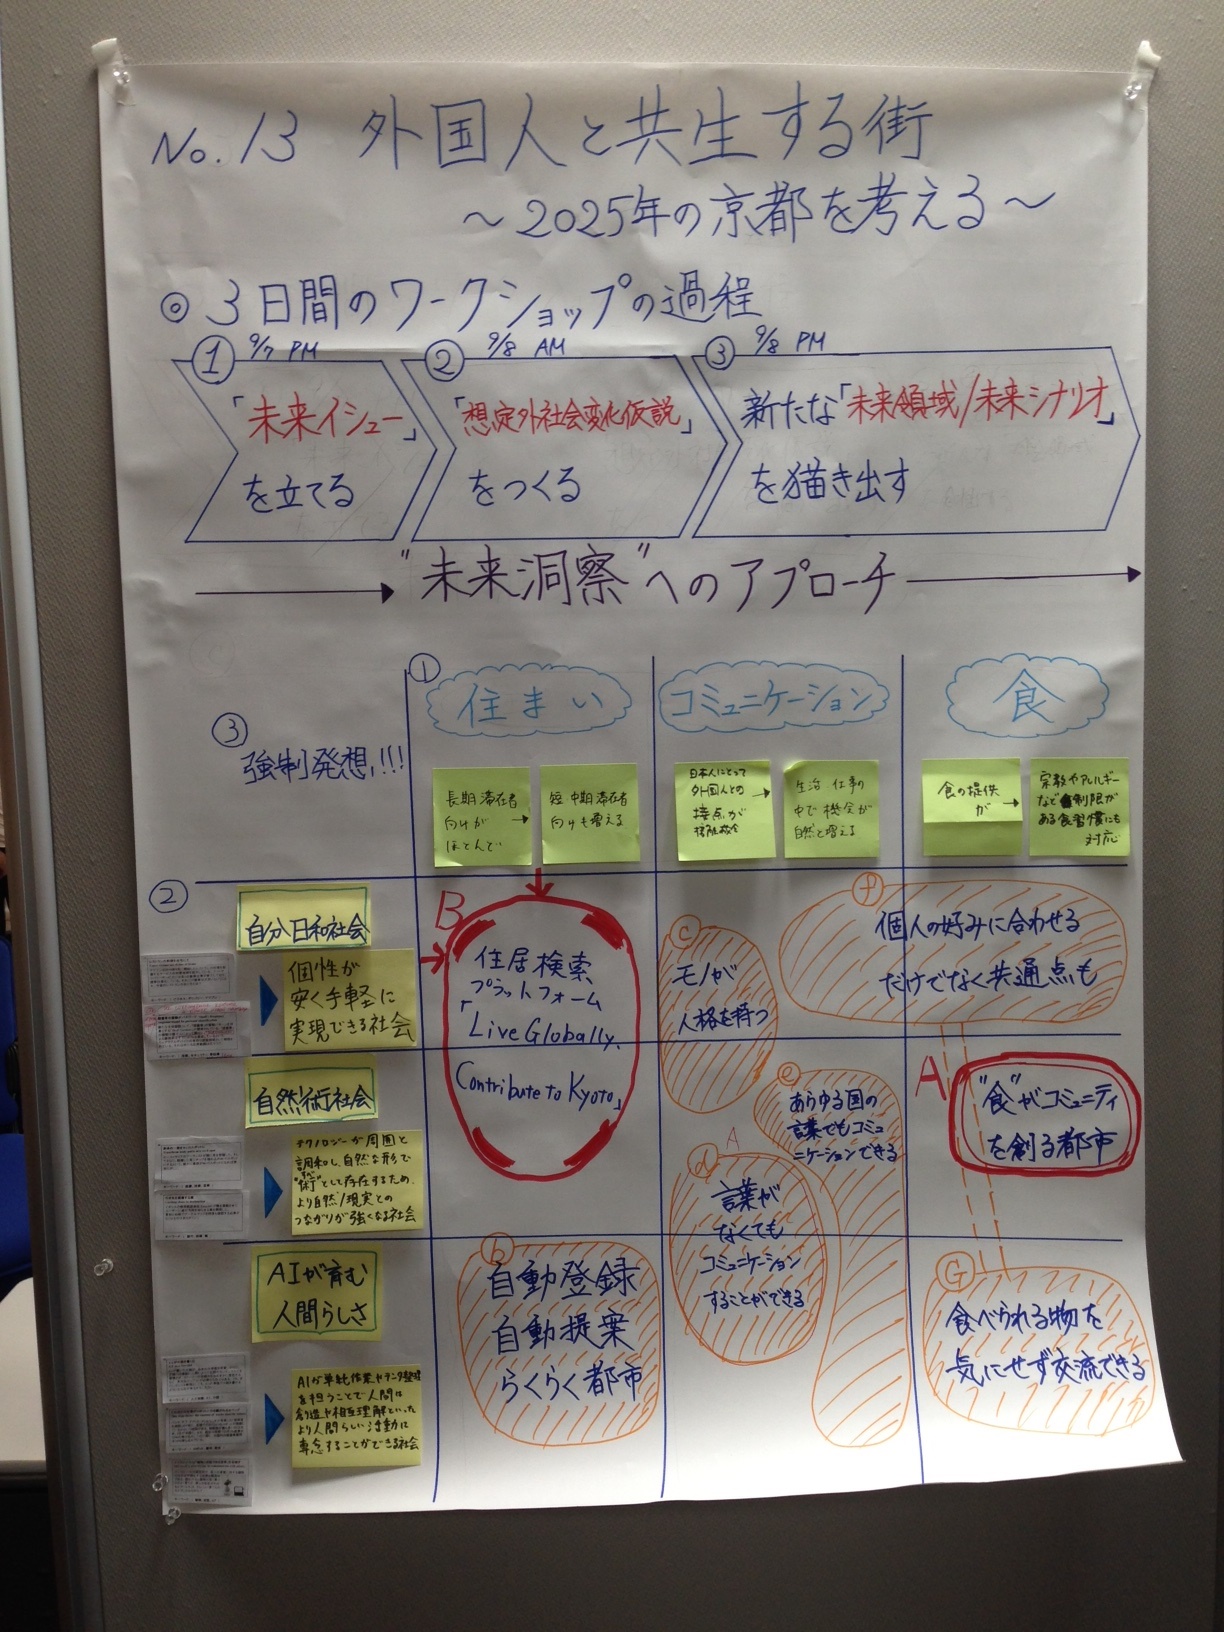 No.13 外国人と共生する街
～2025年の京都を考える～
◎3日間のワークショップの過程
① 9/7 PM
② 9/8 AM
③ 9/8 PM
「未来イシュー」
を立てる
「想定外社会変化仮説」
をつくる
新たな「未来領域/未来シナリオ」
を描き出す
"未来洞察"へのアプローチ
①
住まい
コミュニケーション
食
③
強制発想!!!
長期滞在者
向けが
ほとんど
→
短中期滞在者
向けも増える
日本人にとって
外国人との
接点が
→
生活 仕事の
中で機会が
自然と増える
食の提供
が
→
宗教やアレルギー
など制限が
ある食習慣にも
対応
②
自分日和社会
個性が
安く手軽に
実現できる社会
自然術社会
テクノロジーが周囲と
調和し、自然な形で
"術"として存在するため、
より自然/現実との
つながりが強くなる社会
AIが育む
人間らしさ
AIが単純作業やデータ整理
を担うことで人間は
創造や相互理解といった
より人間らしい活動に
専念することができる社会
B
住居検索
プラットフォーム
「Live Globally,
Contribute to Kyoto」
b
自動登録
自動提案
らくらく都市
c
モノが
人格を持つ
e
あらゆる国の
言葉でもコミュ
ニケーションできる
A
d
言葉が
なくても
コミュニケーション
することができる
f
個人の好みに合わせる
だけでなく共通点も
A
"食"がコミュニティ
を創る都市
G
食べられる物を
気にせず交流できる